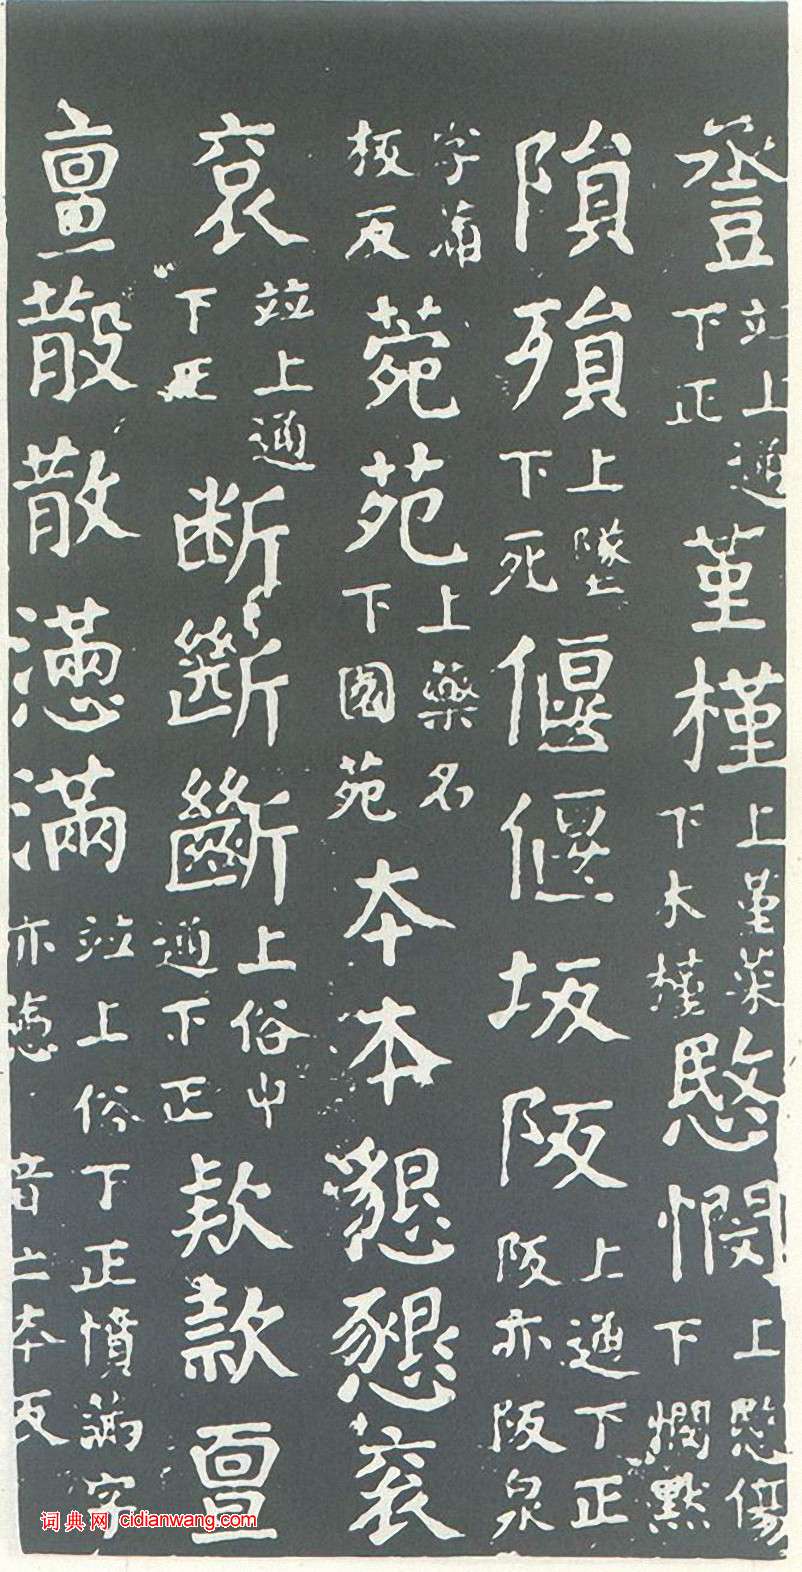 巹竝上通下正堇槿上堇菜下木槿愍憫上愍傷下憫默
隕殞上墜下死偃偃坂阪上通下正阪亦阪泉
字蒲板反菀苑上藥名下園苑夲本懇懇衮
衮竝上通下正断斷斷上俗中通下正欵款亶
亶散散懣滿竝上俗下正憤滿字亦懣音亡本反
词典网 cidianwang.com